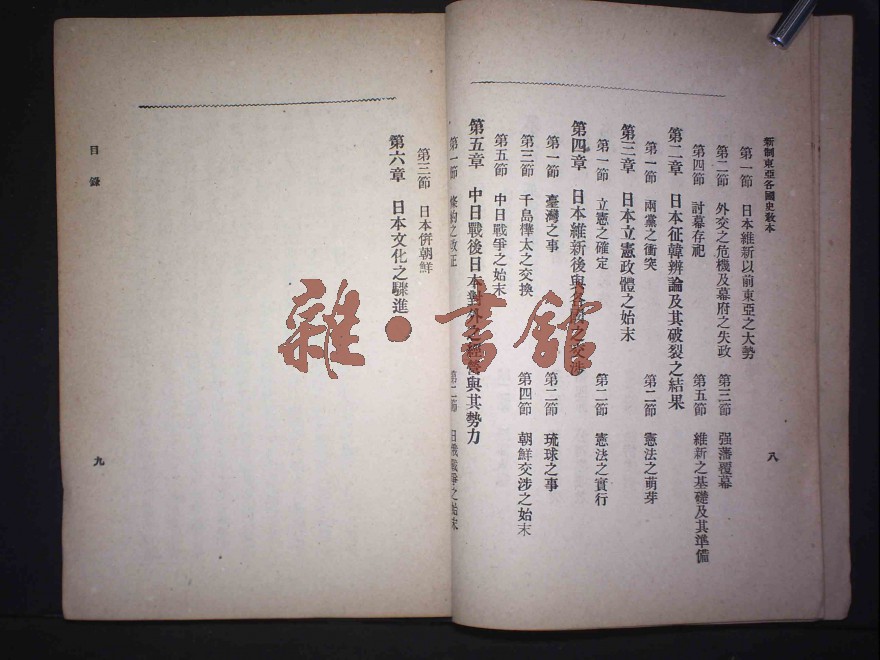 新制東亞各國史教本
八
第一節　日本維新以前東亞之大勢
第二節　外交之危機及幕府之失政　第三節　强藩覆幕
第四節　討幕存祀　第五節　維新之基礎及其準備
第二章　日本征韓辨論及其破裂之結果
第一節　兩黨之衝突　第二節　憲法之萌芽
第三章　日本立憲政體之始末
第一節　立憲之確定　第二節　憲法之實行
第四章　日本維新後與各國之交涉
第一節　臺灣之事　第二節　琉球之事
第三節　千島樺太之交換　第四節　朝鮮交涉之始末
第五節　中日戰爭之始末
第五章　中日戰後日本對外之經營與其勢力
第一節　條約之改正　第二節　日俄戰爭之始末
第三節　日本併朝鮮
第六章　日本文化之驟進
目錄
九
雜·書館